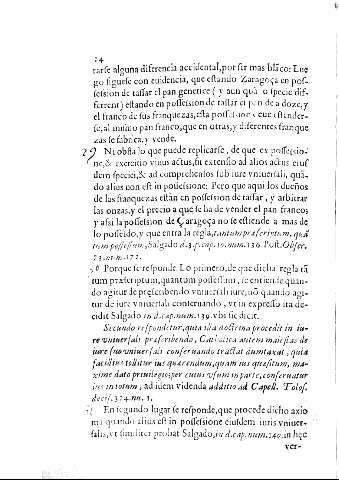 14
tarse alguna diferencia accidental, por ser mas blāco: Lue
go siguese con euidencia, que estando Zaragoça en pos-
session de tassar el pan generice (y aun quā o specie dif-
ferent) estando en possession de tassar el pan de a doze, y
el franco de sus franquezas, esta possession e cue estender-
se, al mismo pan franco, que en otras, y diferentes franque
zas se fabrica, y vende.
29 Ni obsta lo que puede replicarse, de que ex possessio-
ne, & exercitio vnius actus, fit extensio ad alios actus eius
dem speciei, & ad comprehensos sub iure vniuersali, quā-
do alios non est in possessione: Pero que aqui los dueños
de las franquezas están en possession de tassar, y arbitrar
las onzas, y el precio a que se ha de vender el pan franco,
y assi la possession de Çaragoça no se estiende a mas de
lo posseido, y que entra la regla, tantum præscriptum, quā
tum possessum, Salgado d.3.p.cap.10.num.136. Post. Obser.
73.num.171.
30 Porque se responde. Lo primero, de que dicha regla tā
tum præscriptum, quantum possessum, se entiende quan-
do agitur de præscribendo vniuersali iure, nō quando agi-
tur de iure vniuersali conseruando, vt in expresso ita de-
cidit Salgado in d.cap.num.139. vbi sic dicit.
Secundo respondetur, quia ista doctrina procedit in iu-
re vniuersali præscribendo, Catholica autem maiestas de
iure suo vniuersali conseruando tractat dumtaxat, quia
facilius tollitur ius quærendum, quam ius quæsitum, ma-
xime dato priuilegio; per cuius vsum in parte, conseruatur
ius in totum, ad idem videnda additio ad Capell. Tolos.
decis.324.nn.1.
31 En segundo lugar se responde, que procede dicho axio
ma quando alius est in possessione eiusdem iuris vniuer-
salis, vt similiter probat Salgado, in d.cap.num.140. in hęc
ver-